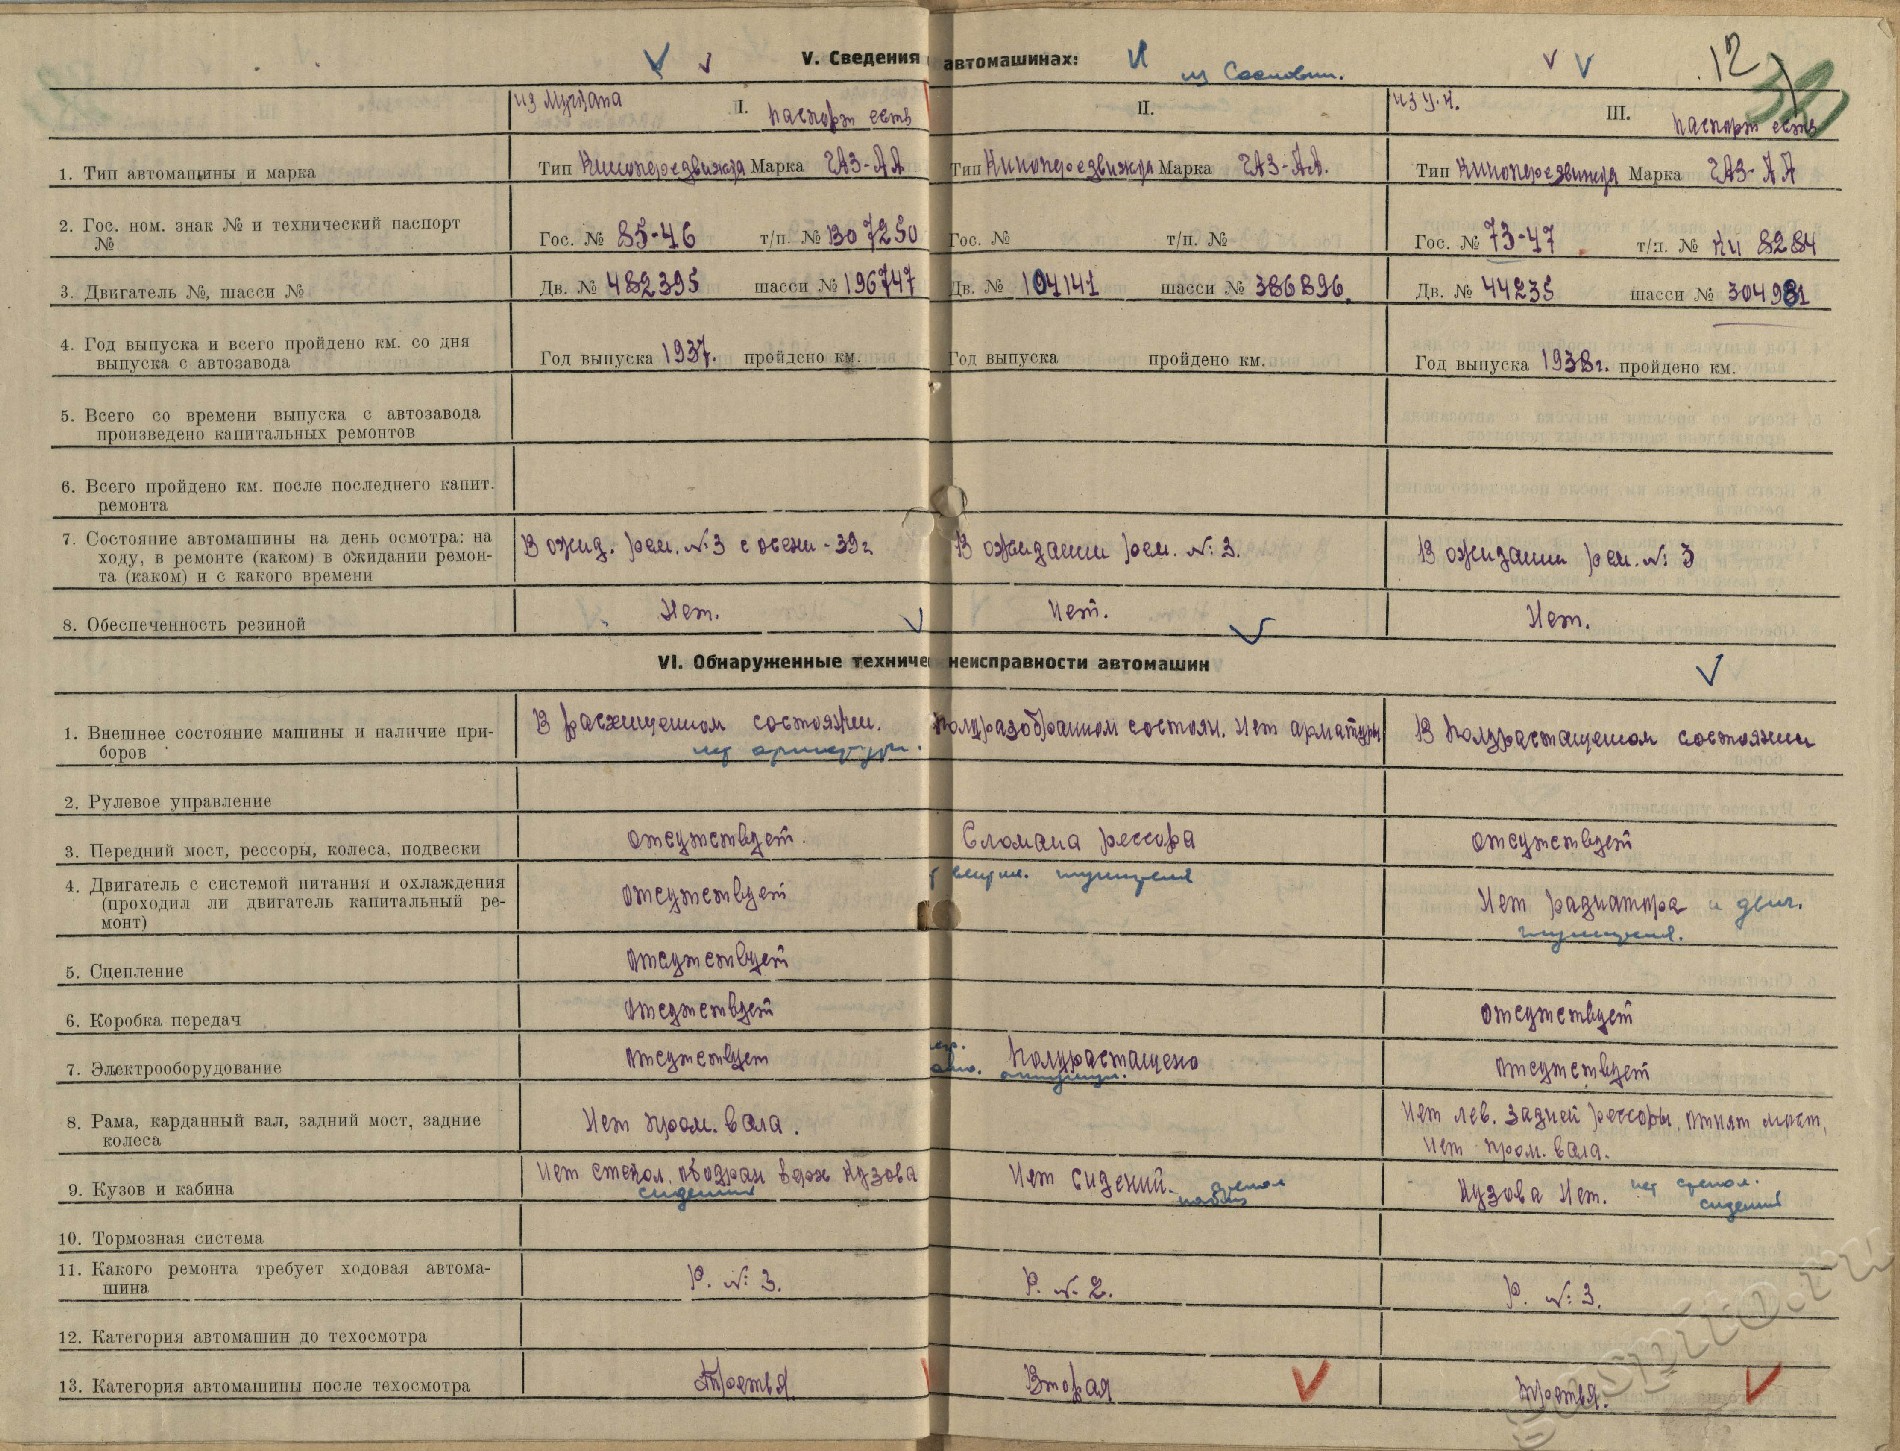 V. Сведения автомашинах:
12
32
из Сосновки.
из Мучкапа I. паспорт есть II. из У.К. III. паспорт есть
1. Тип автомашины и марка Тип Кинопередвижка Марка ГАЗ-АА Тип Кинопередвижка Марка ГАЗ-АА. Тип Кинопередвижка Марка ГАЗ-АА
2. Гос. ном. знак № и технический паспорт
№ Гос. № 85-46 т/п. № ВО 7250 Гос. № т/п. № Гос. № 73-47 т/п. № КИ 8284
3. Двигатель №, шасси № Дв. № 482395 шасси № 196747 Дв. № 104141 шасси № 386896. Дв. № 44235 шасси № 304981
4. Год выпуска и всего пройдено км. со дня
выпуска с автозавода Год выпуска 1937. пройдено км. Год выпуска пройдено км. Год выпуска 1938г. пройдено км.
5. Всего со времени выпуска с автозавода
произведено капитальных ремонтов
6. Всего пройдено км. после последнего капит.
ремонта
7. Состояние автомашины на день осмотра: на
ходу, в ремонте (каком) в ожидании ремон-
та (каком) и с какого времени В ожид. рем. №3 с осени-39г В ожидании рем. №: 3. В ожидании рем. №: 3
8. Обеспеченность резиной Нет. Нет. Нет.
VI. Обнаруженные техниче неисправности автомашин
1. Внешнее состояние машины и наличие при-
боров В расхищенном состоянии. Полуразобранном состоян. Нет арматуры В полурастащеном состоянии
нет арматуры.
2. Рулевое управление
3. Передний мост, рессоры, колеса, подвески отсутствует. Сломана рессора отсутствует
4. Двигатель с системой питания и охлаждения
(проходил ли двигатель капитальный ре-
монт) отсутствует Нет радиатора и двиг.
5. Сцепление отсутствует
6. Коробка передач отсутствует отсутствует
7. Электрооборудование отсутствует Полурастащено отсутствует
8. Рама, карданный вал, задний мост, задние
колеса Нет пром. вала. Нет лев. задней рессоры, отнят мост,
нет пром. вала.
9. Кузов и кабина Нет стекол. ободран верх кузова Нет сидений. стекол Кузова Нет. нет стекол.
сидений сидений
10. Тормозная система
11. Какого ремонта требует ходовая автома-
шина Р. №: 3. Р. №. 2. Р. №: 3.
12. Категория автомашин до техосмотра
13. Категория автомашины после техосмотра Третья Вторая третья.